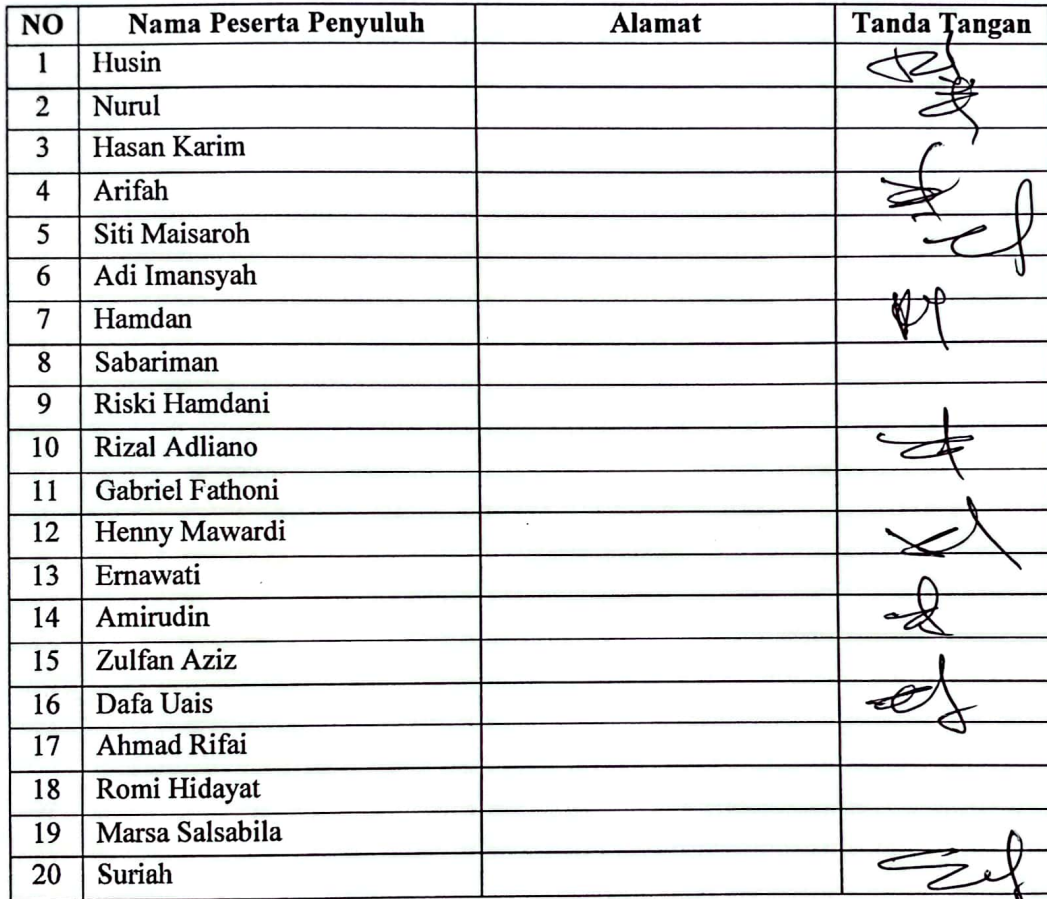 NO Nama Peserta Penyuluh Alamat Tanda Tangan
1 Husin
2 Nurul
3 Hasan Karim
4 Arifah
5 Siti Maisaroh
6 Adi Imansyah
7 Hamdan
8 Sabariman
9 Riski Hamdani
10 Rizal Adliano
11 Gabriel Fathoni
12 Henny Mawardi
13 Ernawati
14 Amirudin
15 Zulfan Aziz
16 Dafa Uais
17 Ahmad Rifai
18 Romi Hidayat
19 Marsa Salsabila
20 Suriah